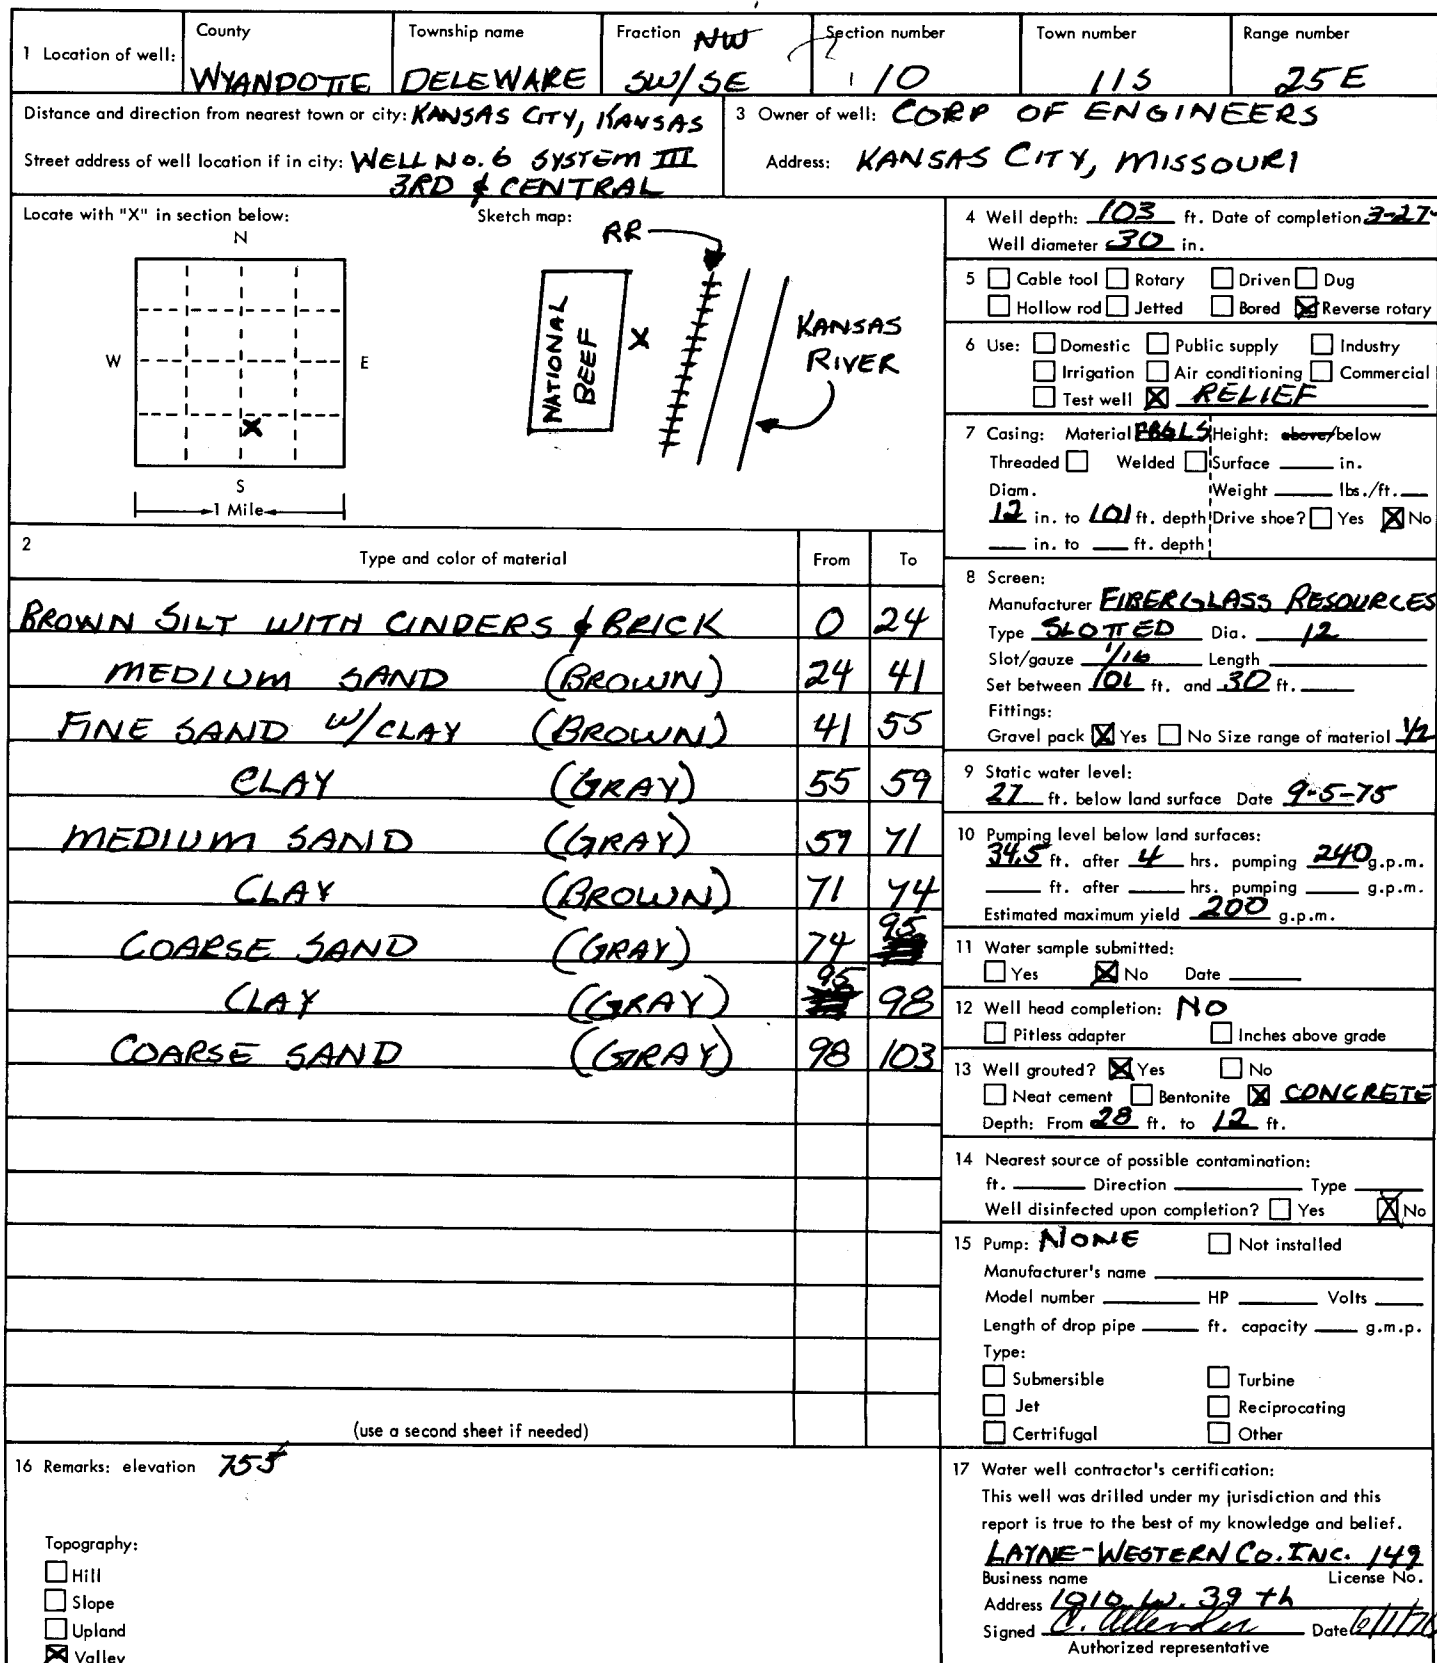 1 Location of well:
County
WYANDOTTE
Township name
DELEWARE
Fraction NW
SW/SE
Section number
10
Town number
11S
Range number
25E
Distance and direction from nearest town or city: KANSAS CITY, KANSAS
Street address of well location if in city: WELL No. 6 SYSTEM III
3RD & CENTRAL
3 Owner of well: CORP OF ENGINEERS
Address: KANSAS CITY, MISSOURI
Locate with "X" in section below:
N
W
E
X
S
1 Mile
Sketch map:
RR
NATIONAL
BEEF
X
KANSAS
RIVER
2
Type and color of material From To
BROWN SILT WITH CINDERS & BRICK 0 24
MEDIUM SAND (BROWN) 24 41
FINE SAND W/CLAY (BROWN) 41 55
CLAY (GRAY) 55 59
MEDIUM SAND (GRAY) 59 71
CLAY (BROWN) 71 74
COARSE SAND (GRAY) 74 95
CLAY (GRAY) 95 98
COARSE SAND (GRAY) 98 103
(use a second sheet if needed)
4 Well depth: 103 ft. Date of completion 3-27-
Well diameter 30 in.
5 Cable tool Rotary Driven Dug
Hollow rod Jetted Bored Reverse rotary
6 Use: Domestic Public supply Industry
Irrigation Air conditioning Commercial
Test well RELIEF
7 Casing: Material FBGLS Height: above/below
Threaded Welded Surface in.
Diam. Weight lbs./ft.
12 in. to 101 ft. depth Drive shoe? Yes No
in. to ft. depth
8 Screen:
Manufacturer FIBERGLASS RESOURCES
Type SLOTTED Dia. 12
Slot/gauze 1/16 Length
Set between 101 ft. and 30 ft.
Fittings:
Gravel pack Yes No Size range of material 1/2
9 Static water level:
27 ft. below land surface Date 9-5-75
10 Pumping level below land surfaces:
34.5 ft. after 4 hrs. pumping 240 g.p.m.
ft. after hrs. pumping g.p.m.
Estimated maximum yield 200 g.p.m.
11 Water sample submitted:
Yes No Date
12 Well head completion: NO
Pitless adapter Inches above grade
13 Well grouted? Yes No
Neat cement Bentonite CONCRETE
Depth: From 28 ft. to 12 ft.
14 Nearest source of possible contamination:
ft. Direction Type
Well disinfected upon completion? Yes No
15 Pump: NONE Not installed
Manufacturer's name
Model number HP Volts
Length of drop pipe ft. capacity g.m.p.
Type:
Submersible Turbine
Jet Reciprocating
Certrifugal Other
16 Remarks: elevation 755
Topography:
Hill
Slope
Upland
Valley
17 Water well contractor's certification:
This well was drilled under my jurisdiction and this
report is true to the best of my knowledge and belief.
LAYNE-WESTERN CO. INC. 149
Business name License No.
Address 1010 W. 39th
Signed C. Allender Date 6/1/76
Authorized representative